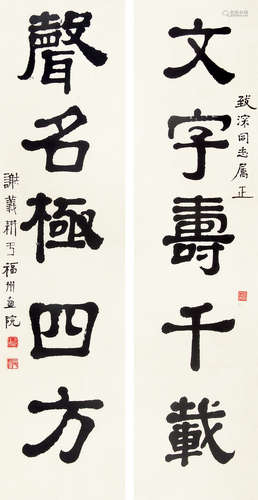 文字壽千載
致深同志屬正
聲名極四方
謝義耕于福州畫院